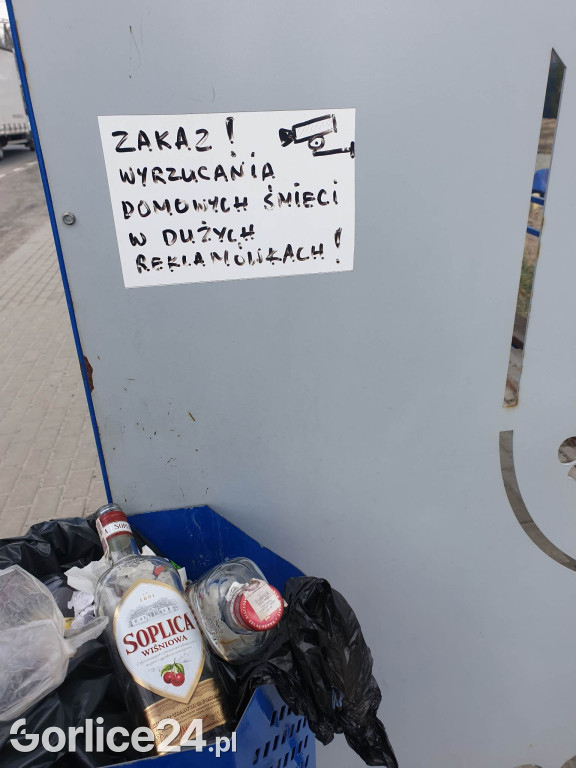 ZAKAZ!
WYRZUCANIA
DOMOWYCH ŚMIECI
W DUŻYCH
REKLAMÓWKACH!
SOPLICA
WIŚNIOWA
Gorlice24.pl